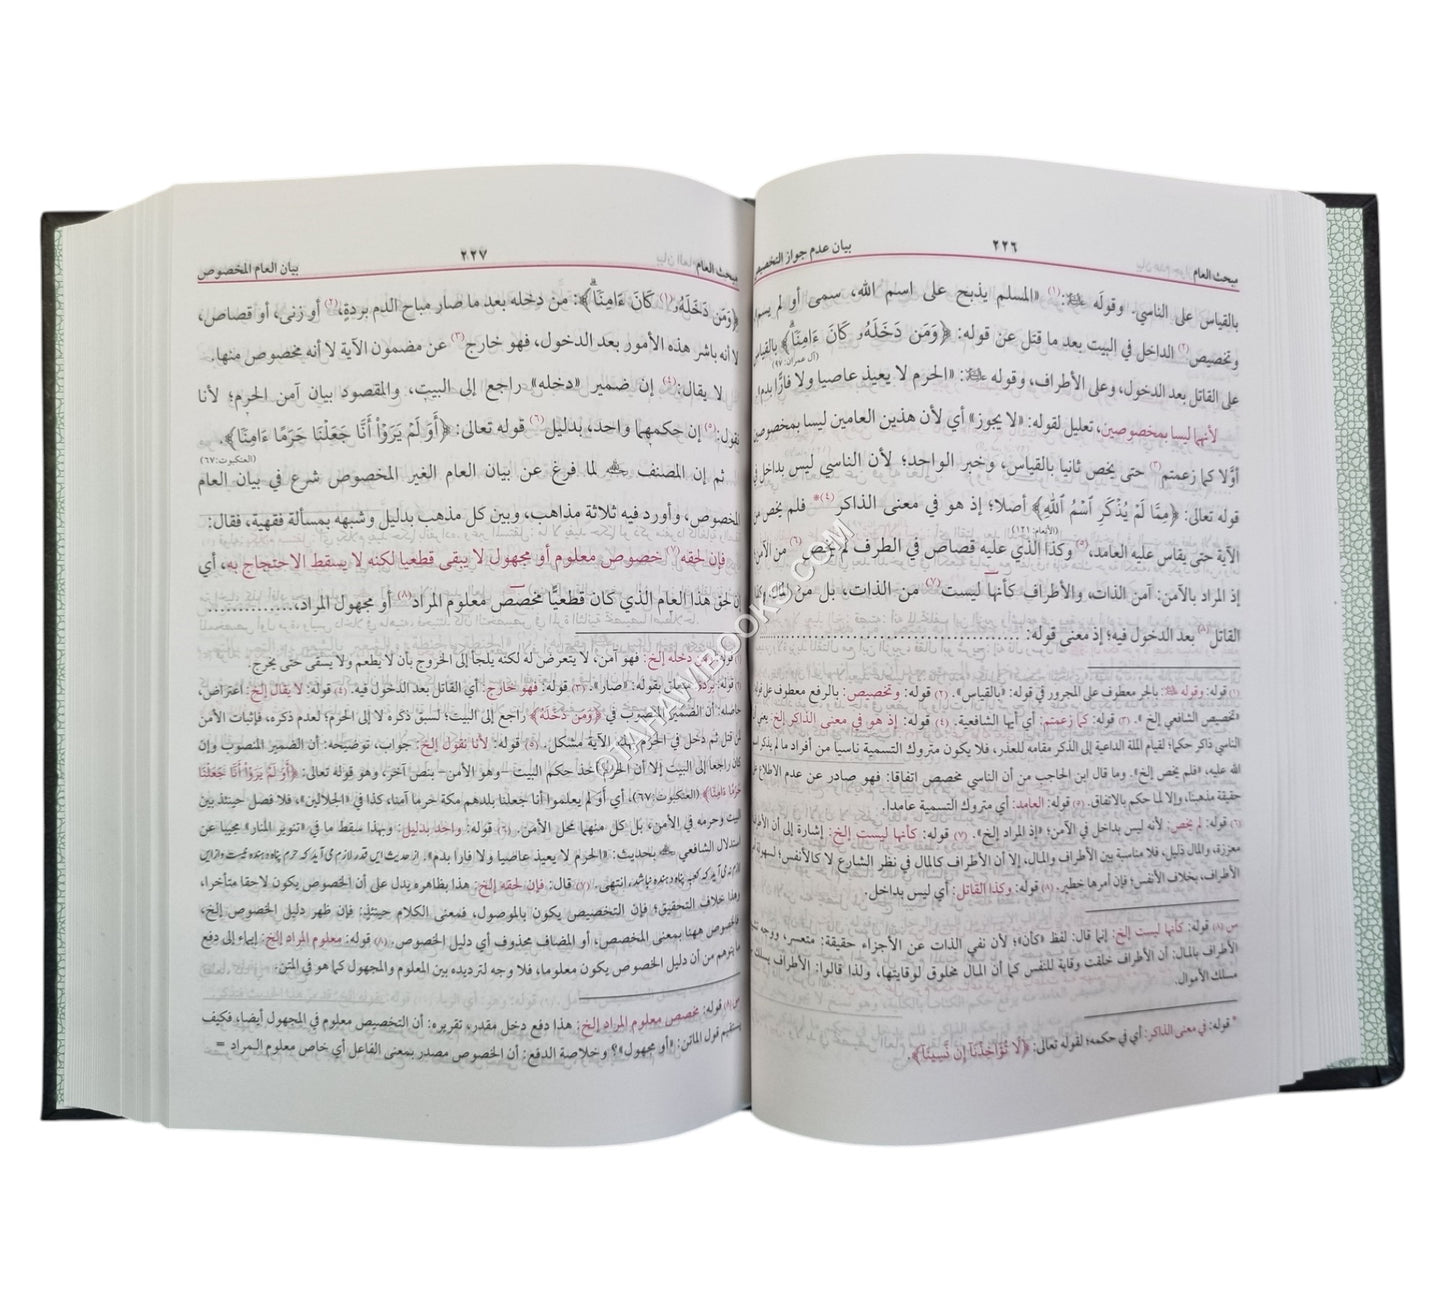 مبحث العام ٢٢٦ بيان عدم جواز التخصيص
بالقياس على الناسي. وقوله ﷺ:(١) «المسلم يذبح على اسم الله، سمى أو لم يسم»
وتخصيص(٢) الداخل في البيت بعد ما قتل عن قوله: ﴿وَمَن دَخَلَهُۥ كَانَ ءَامِنًا﴾ بالقياس
(آل عمران: ٩٧)
على القاتل بعد الدخول، وعلى الأطراف، وقوله ﷺ: «الحرم لا يعيذ عاصيا ولا فارًّا بدم»
لأنهما ليسا بمخصوصين، تعليل لقوله: «لا يجوز» أي لأن هذين العامين ليسا بمخصوصين
أوّلا كما زعمتم(٣) حتى يخص ثانيا بالقياس، وخبر الواحد؛ لأن الناسي ليس بداخل في
قوله تعالى: ﴿مِمَّا لَمْ يُذْكَرِ ٱسْمُ ٱللَّهِ﴾ أصلا؛ إذ هو في معنى الذاكر(٤)* فلم يخص من
(الأنعام: ١٢١)
الآية حتى يقاس عليه العامد،(٥) وكذا الذي عليه قصاص في الطرف لم يخص(٦) من الآية؛
إذ المراد بالآمن: آمن الذات، والأطراف كأنها ليست(٧) من الذات، بل من المال، وكذا
القاتل(٨) بعد الدخول فيه؛ إذ معنى قوله: ........
(١) قوله: وقوله ﷺ: بالجر معطوف على المجرور في قوله: «بالقياس». (٢) قوله: وتخصيص: بالرفع معطوف على قوله:
«تخصيص الشافعي إلخ». (٣) قوله: كما زعمتم: أي أيها الشافعية. (٤) قوله: إذ هو في معنى الذاكر إلخ: يعني أن
الناسي ذاكر حكما؛ لقيام الملة الداعية إلى الذكر مقامه للعذر، فلا يكون متروك التسمية ناسيا من أفراد ما لم يذكر اسم
الله عليه، «فلم يخص إلخ». وما قال ابن الحاجب من أن الناسي مخصص اتفاقا: فهو صادر عن عدم الاطلاع على
حقيقة مذهبنا، وإلا لما حكم بالاتفاق. (٥) قوله: العامد: أي متروك التسمية عامدا.
(٦) قوله: لم يخص: لأنه ليس بداخل في الآمن؛ «إذ المراد إلخ». (٧) قوله: كأنها ليست إلخ: إشارة إلى أن الأطراف
معززة، والمال ذليل، فلا مناسبة بين الأطراف والمال، إلا أن الأطراف كالمال في نظر الشارع لا كالأنفس؛ لسهولة أمر
الأطراف، بخلاف الأنفس؛ فإن أمرها خطير. (٨) قوله: وكذا القاتل: أي ليس بداخل.
قوله: كأنها ليست إلخ: إنما قال: لفظ «كأن»؛ لأن نفي الذات عن الأجزاء حقيقة: متعسر، ووجه
الأطراف بالمال: أن الأطراف خلقت وقاية للنفس كما أن المال مخلوق لوقايتها، ولذا قالوا: الأطراف يسلك
مسلك الأموال.
* قوله: في معنى الذاكر: أي في حكمه؛ لقوله تعالى: ﴿لَا تُؤَاخِذْنَآ إِن نَّسِينَآ﴾.
مبحث العام ٢٢٧ بيان العام المخصوص
﴿وَمَن دَخَلَهُۥ(١) كَانَ ءَامِنًا﴾: من دخله بعد ما صار مباح الدم بردةٍ،(٢) أو زنى، أو قصاص،
لا أنه باشر هذه الأمور بعد الدخول، فهو خارج(٣) عن مضمون الآية لا أنه مخصوص منها.
لا يقال:(٤) إن ضمير «دخله» راجع إلى البيت، والمقصود بيان آمن الحرم؛ لأنا
نقول:(٥) إن حكمهما واحد، بدليل(٦) قوله تعالى: ﴿أَوَ لَمْ يَرَوْا۟ أَنَّا جَعَلْنَا حَرَمًا ءَامِنًا﴾.
(العنكبوت: ٦٧)
ثم إن المصنف ﷺ لما فرغ عن بيان العام الغير المخصوص شرع في بيان العام
المخصوص، وأورد فيه ثلاثة مذاهب، وبين كل مذهب بدليل وشبهه بمسألة فقهية، فقال:
فإن لحقه(٧) خصوص معلوم أو مجهول لا يبقى قطعيا لكنه لا يسقط الاحتجاج به، أي
إن لحق هذا العام الذي كان قطعيًّا مخصص معلوم المراد(٨) أو مجهول المراد، ........
(١) قوله: من دخله إلخ: فهو آمن، لا يتعرض له لكنه يلجأ إلى الخروج بأن لا يطعم ولا يسقى حتى يخرج.
(٢) قوله: بردة: يتعلق بقوله: «صار». (٣) قوله: فهو خارج: أي القاتل بعد الدخول فيه. (٤) قوله: لا يقال إلخ: اعتراض،
حاصله: أن الضمير المنصوب في ﴿وَمَن دَخَلَهُ﴾ راجع إلى البيت؛ لسبق ذكره لا إلى الحرم؛ لعدم ذكره، فإثبات الأمن
لمن قتل ثم دخل في الحرم بهذه الآية مشكل. (٥) قوله: لأنا نقول إلخ: جواب، توضيحه: أن الضمير المنصوب وإن
كان راجعا إلى البيت إلا أن الحرم أخذ حكم البيت –وهو الأمن– بنص آخر، وهو قوله تعالى: ﴿أَوَ لَمْ يَرَوْا۟ أَنَّا جَعَلْنَا
حَرَمًا ءَامِنًا﴾ (العنكبوت: ٦٧)، أي أو لم يعلموا أنا جعلنا بلدهم مكة حرما آمنا، كذا في «الجلالين»، فلا فصل حينئذ بين
البيت وحرمه في الأمن، بل كل منهما محل الأمن. (٦) قوله: واحد بدليل: وبهذا سقط ما في «تنوير المنار» مجيبا عن
استدلال الشافعي بحديث: «الحرم لا يعيذ عاصيا ولا فارا بدم».
انتهى. (٧) قال: فإن لحقه إلخ: هذا بظاهره يدل على أن الخصوص يكون لاحقا متأخرا،
وهذا خلاف التحقيق؛ فإن التخصيص يكون بالموصول، فمعنى الكلام حينئذ: فإن ظهر دليل الخصوص إلخ،
فالخصوص ههنا بمعنى المخصص، أو المضاف محذوف أي دليل الخصوص. (٨) قوله: معلوم المراد إلخ: إيماء إلى دفع
ما يتوهم من أن دليل الخصوص يكون معلوما، فلا وجه لترديده بين المعلوم والمجهول كما هو في المتن.
قوله: مخصص معلوم المراد إلخ: هذا دفع دخل مقدر، تقريره: أن التخصيص معلوم في المجهول أيضا، فكيف
يستقيم قول الماتن: «أو مجهول»؟ وخلاصة الدفع: أن الخصوص مصدر بمعنى الفاعل أي خاص معلوم المراد =
©TAHAMIBOOKS.COM